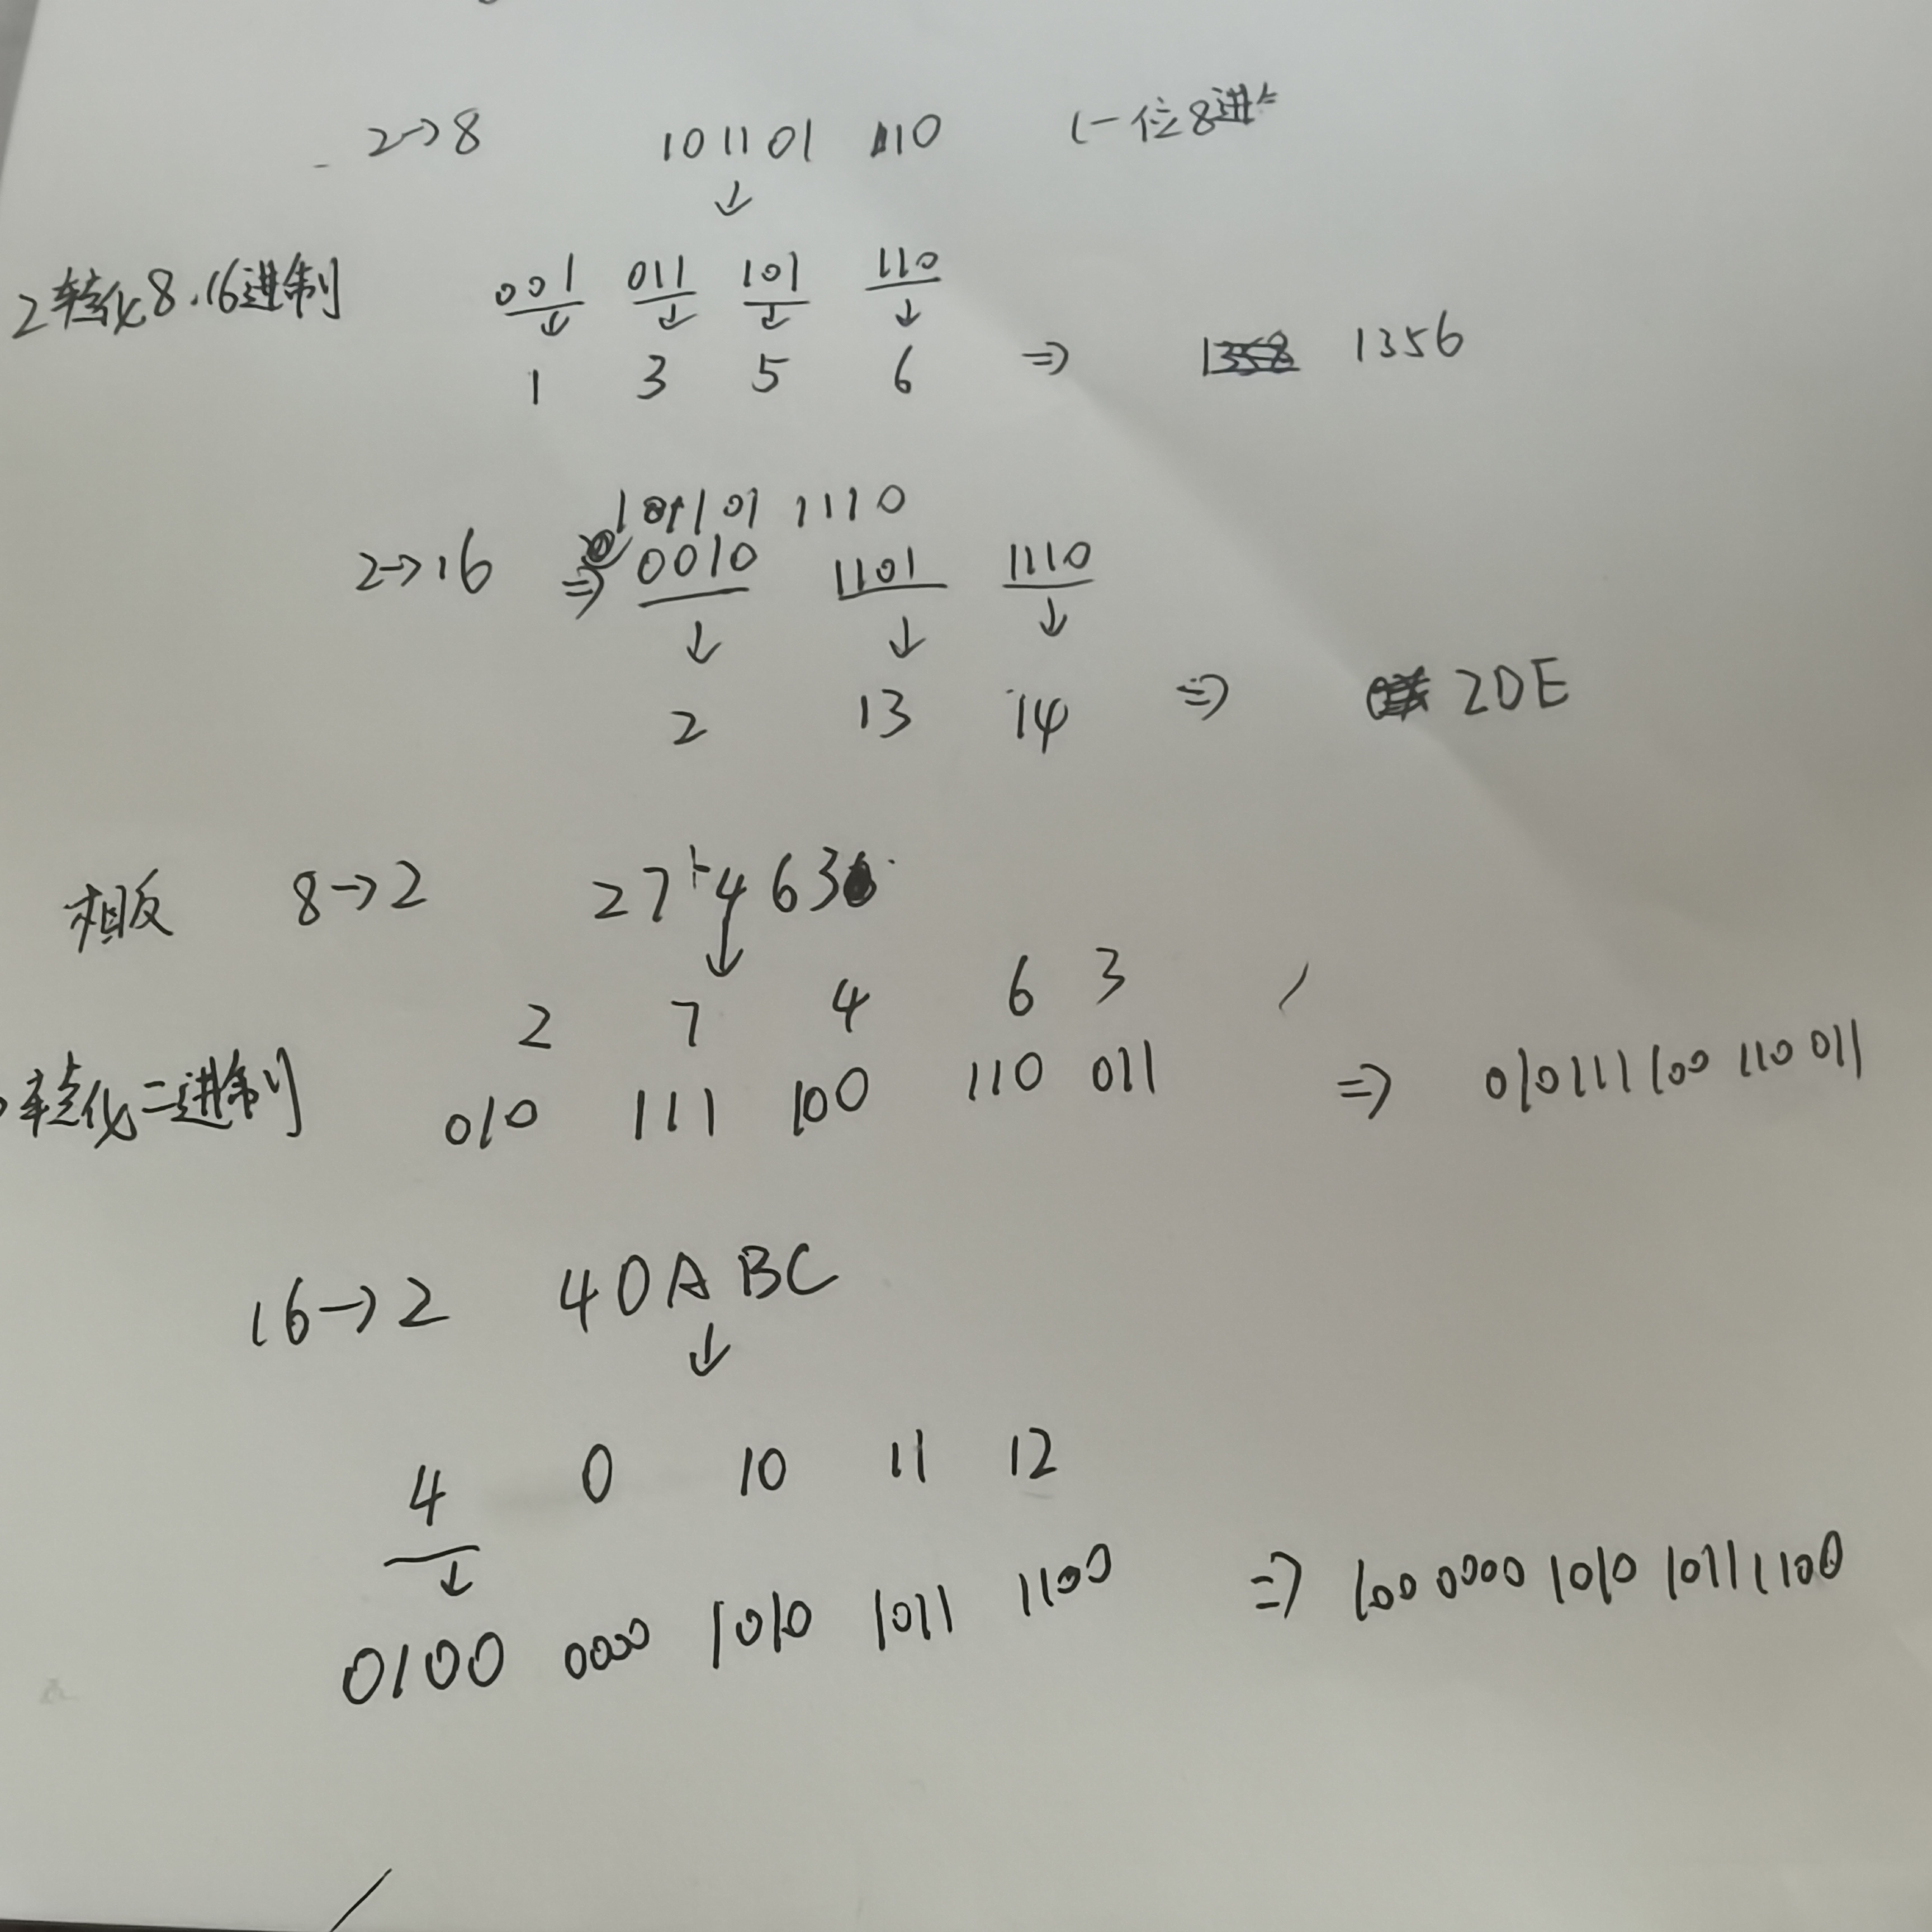 2→8 101101 110 (一位8进
↓
2转化8.16进制 001 011 101 110
↓ ↓ ↓ ↓
1 3 5 6 ⇒ 1356
101101 1110
2→16 ⇒ 0010 1101 1110
↓ ↓ ↓
2 13 14 ⇒ 2DE
相反 8→2 27463
↓
2 7 4 6 3
转化二进制 010 111 100 110 011 ⇒ 010111100 110 011
16→2 40ABC
↓
4 0 10 11 12
↓
0100 0000 1010 1011 1100 ⇒ 100 0000 1010 10111100